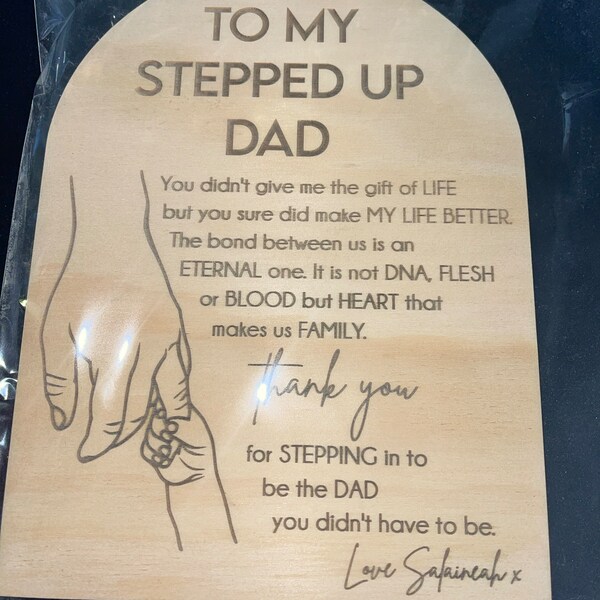 TO MY
STEPPED UP
DAD
You didn't give me the gift of LIFE
but you sure did make MY LIFE BETTER.
The bond between us is an
ETERNAL one. It is not DNA, FLESH
or BLOOD but HEART that
makes us FAMILY.
thank you
for STEPPING in to
be the DAD
you didn't have to be.
Love Salaineah x